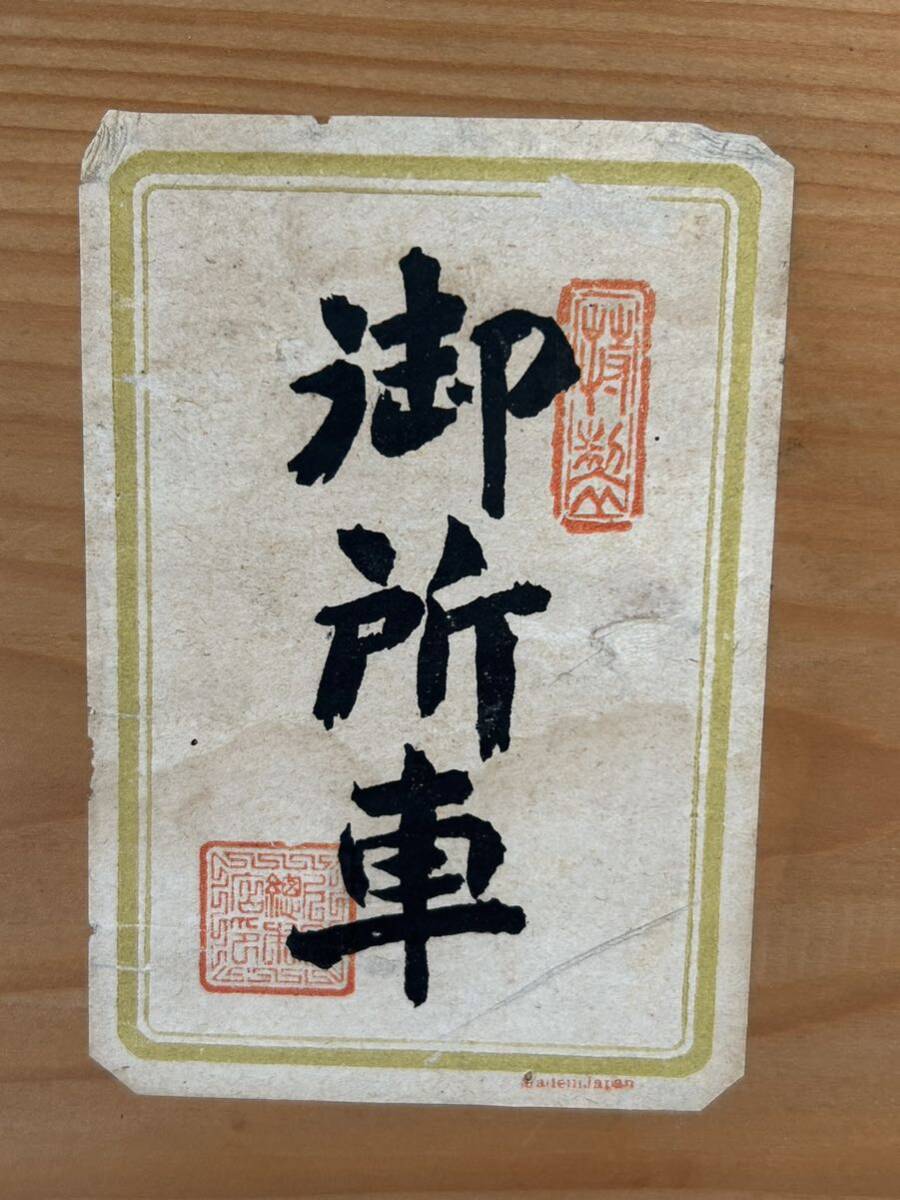 御所車
特製
Made in Japan